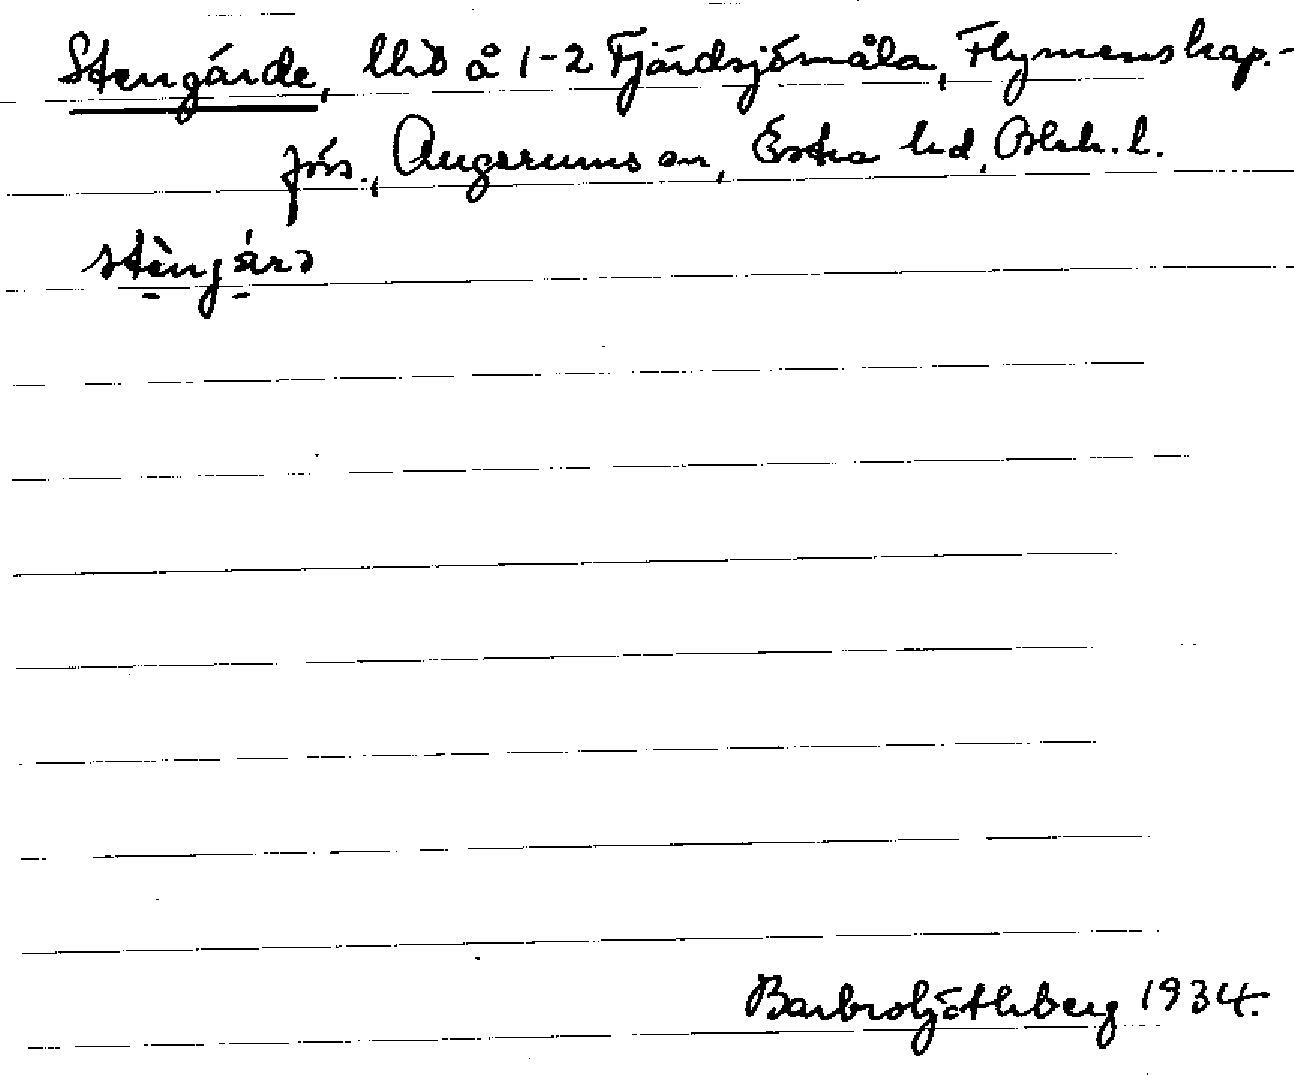 Stengärde, lhd å 1-2 Fjärdsjömåla, Flymenskap.-
förs., Augerums sn, Östra hd, Blek. l.
stèngárə
Barbro Göthberg 1934.